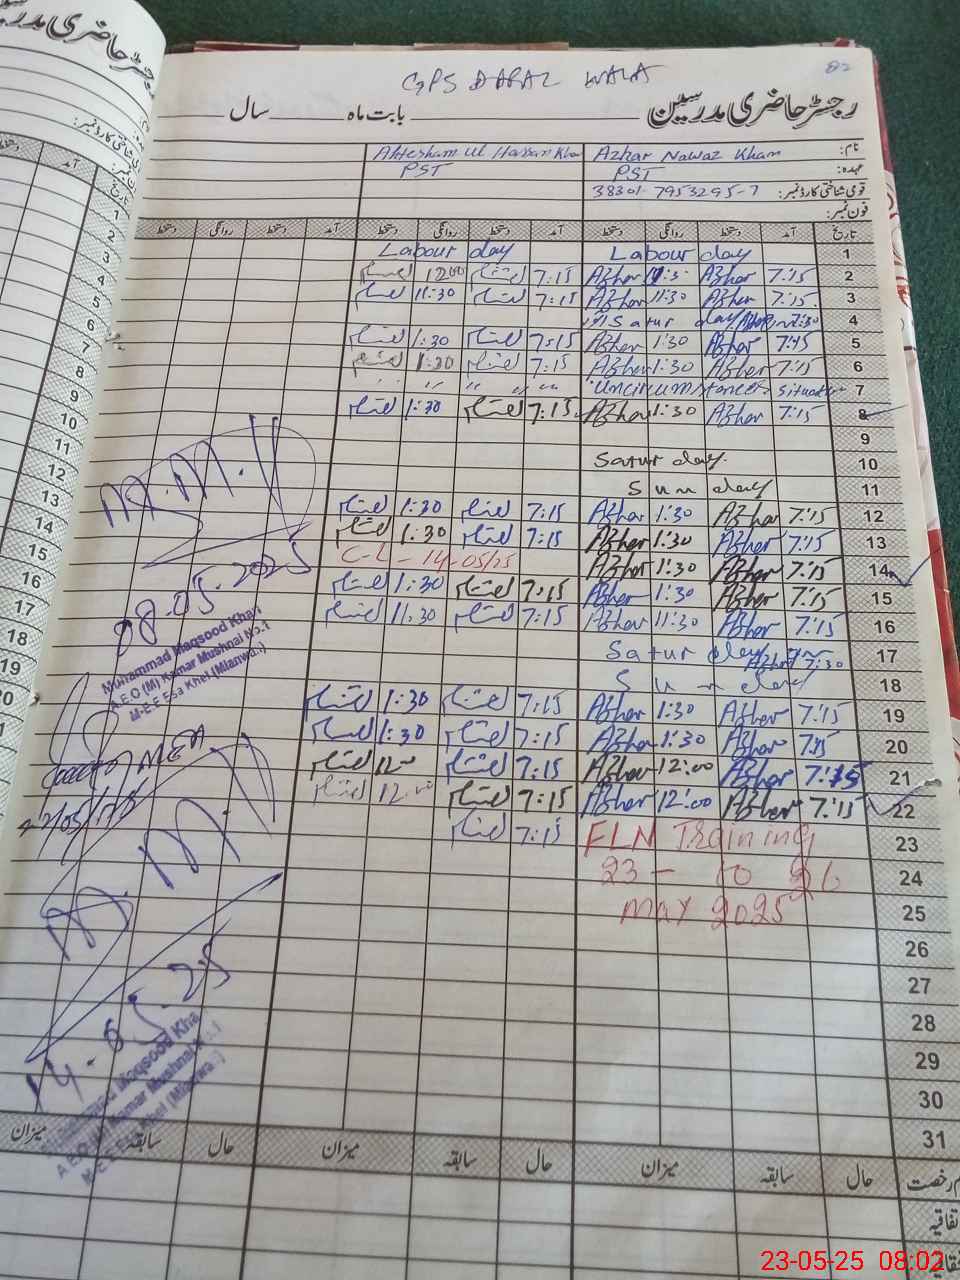 82
GPS DARAZ WALA
رجسٹر حاضری مدرسین بابت ماہ سال
نام: Azhar Nawaz Kham Ahtesham Ul Hassan Khan
عہدہ: PST PST
قومی شناختی کارڈ نمبر: 38301-7953295-7
فون نمبر:
تاریخ آمد دستخط روانگی دستخط آمد دستخط روانگی دستخط آمد دستخط روانگی دستخط
1 Labour day Labour day
2 7:15 Azhar Azhar 7:15 احتشام 1200 احتشام
3 7:15 Azhar 11:30 Azhar 7:15 احتشام 11:30 احتشام
4 Satur day 7:30
5 7:15 Azhar 1:30 Azhar 7:15 احتشام 1:30 احتشام
6 7:15 Azhar 1:30 Azhar 7:15 احتشام 1:30 احتشام
7 uncircumstances situation
8 7:15 Azhar 1:30 Azhar 7:15 احتشام 1:30 احتشام
9
10 Satur day
11 Sunday
12 7:15 Azhar 1:30 Azhar 7:15 احتشام 1:30 احتشام
13 7:15 Azhar 1:30 Azhar 7:15 احتشام 1:30 احتشام
14 7:15 Azhar 1:30 Azhar C-L-14-05/25
15 7:15 Azhar 1:30 Azhar 7:15 احتشام 1:30 احتشام
16 7:15 Azhar 11:30 Azhar 7:15 احتشام 11:30 احتشام
17 Satur day Azhar 7:30
18 Sunday
19 7:15 Azhar 1:30 Azhar 7:15 احتشام 1:30 احتشام
20 7:15 Azhar 1:30 Azhar 7:15 احتشام 1:30 احتشام
21 7:15 Azhar 12:00 Azhar 7:15 احتشام احتشام
22 7:15 Azhar 12:00 Azhar 7:15 احتشام 12:00 احتشام
23 FLN Training 7:15 احتشام
24 23 - to 26
25 May 2025
26
27
28
29
30
31
حال سابقہ میزان حال سابقہ میزان حال سابقہ میزان
رخصت
تفاقیہ
08.05.2025
Muhammad Maqsood Khan
A.E.O (M) Kamar Mushnai No.1
M-E-E Esa Khel (Mianwali)
MEA
14-05-25
Maqsood Kha
A.E.O (M) Kamar Mushnai
M-E-E Esa Khel (Mianwali)
23-05-25 08:02